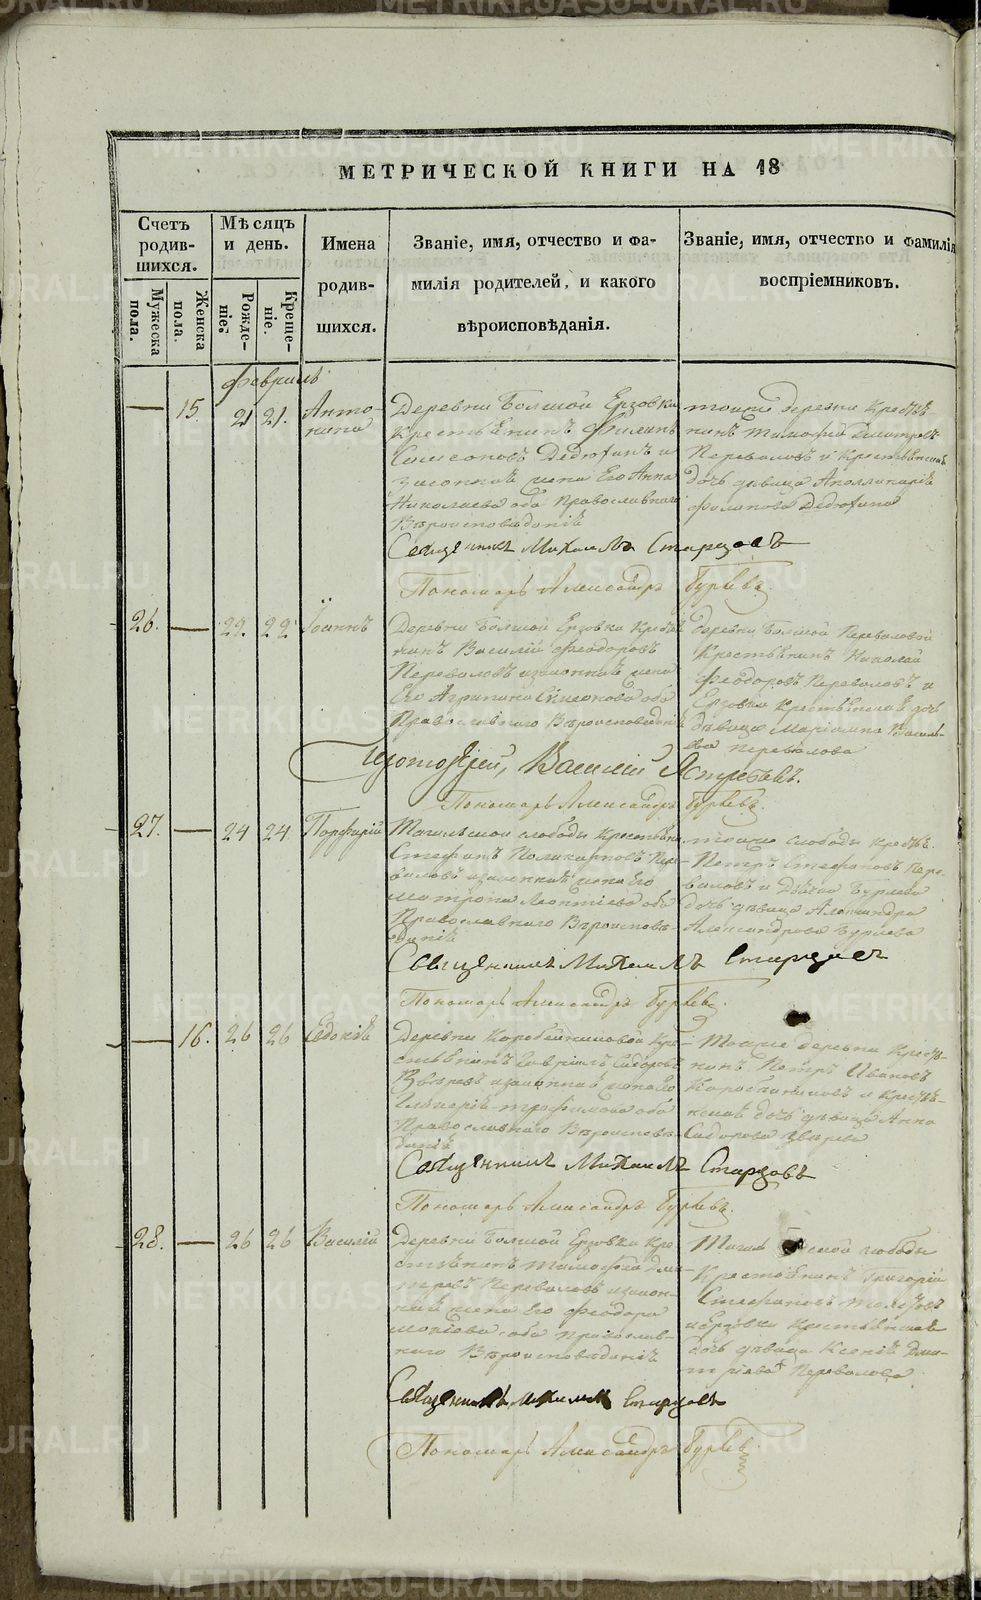 МЕТРИЧЕСКОЙ КНИГИ НА 18
Счетъ родив-шихся.
Мужеска пола.
Женска пола.
Мѣсяцъ и день.
Рожде-ніе.
Креще-ніе.
Имена родив-шихся.
Званіе, имя, отчество и фа-
милія родителей, и какого
вѣроисповѣданія.
Званіе, имя, отчество и фамилія
воспріемниковъ.
февраль
15. 21 21. Анто-
нина
Деревни Болшой Ерзовки
Крестьянинъ Филипъ
Симеоновъ Дедюхинъ и
законная жена Его Анна
Николаева оба Православнаго
Вѣроисповѣданія
тояже деревни Крестья
нинъ Тимофей Дмитріевъ
Переваловъ и Крестьянская
дочь дѣвица Аполлинарія
Филипова Дедюхина
Священникъ Михаилъ Старцовъ
Пономарь Александръ Гурьевъ.
26. 22. 22 Іоаннъ
Деревни Болшой Ерзовки Кресть
нинъ Василій Феодоровъ
Переваловъ и законная жена
Его Агрипина Симеонова оба
Православнаго Вѣроисповѣданія
деревни Болшой Переваловой
Крестьянинъ Николай
Феодоровъ Переваловъ и
Ерзовки Крестьянская дочь
дѣвица Василь-
ева Перевалова
Протоіерей, Василій Ястребовъ.
Пономарь Александръ Гурьевъ.
27. 24 24 Порфирій
Тагильской слободы Крестьянин
Стефанъ Поликарповъ Пере
валовъ и законная жена Его
Матрона Леонтіева оба
Православнаго Вѣроисповѣ-
данія
тояже слободы Крестья.
Петръ Стефановъ Пере-
валовъ и Гурьева
дочь дѣвица Александра
Александрова Гурьева
Священникъ Михаилъ Старцовъ
Пономарь Александръ Гурьевъ.
16. 26 26 Евдокія
Деревни Коробейниковой Кре
стьянинъ Гавріилъ Сидоровъ
Звѣревъ и законная жена Его
Гликерія Трофимова оба
Православнаго Вѣроисповѣ-
данія
Тояже деревни Крестья-
нинъ Петръ Ивановъ
Коробейниковъ и Крестья-
нская дочь дѣвица Анна
Сидорова Звѣрева
Священникъ Михаилъ Старцовъ
Пономарь Александръ Гурьевъ.
28. 26 26 Василій
Деревни Болшой Ерзовки Кре
стьянинъ Тимофей Дми-
тріевъ Переваловъ и закон-
ная жена Его Феодора
оба Православ-
наго Вѣроисповѣданія
Тагильской слободы
Крестьянинъ Григорій
Стефановъ
и Ерзовки Крестьянская
дочь дѣвица Ксенія Дми-
тріева Перевалова.
Священникъ Михаилъ Старцовъ
Пономарь Александръ Гурьевъ.
METRIKI.GASO-URAL.RU